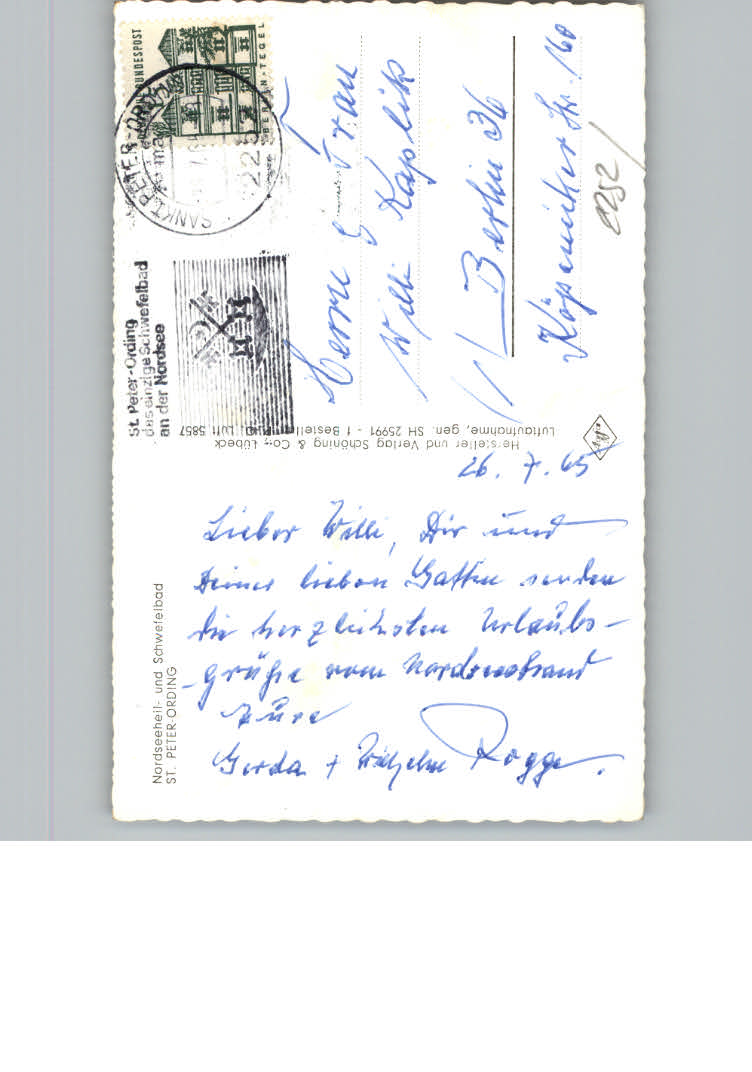 Nordseeheil- und Schwefelbad
ST. PETER-ORDING
26. 7. 65
Lieber Willi, Dir und
Deiner lieben Gattin senden
die herzlichsten Urlaubs-
-grüße vom Nordseestrand
Eure
Gerda + Wilhelm Rogge.
Hersteller und Verlag Schöning & Co., Lübeck
Luftaufnahme, gen. SH 25991 - 1 Bestell Luft 5857
Agfa
St. Peter-Ording
das einzige Schwefelbad
an der Nordsee
SANKT PETER-ORDING
2252
BUNDESPOST
BERLIN-TEGEL
Herrn & Frau
Willi Kaplik
1/ Berlin 36
Köpenicker Str. 160
2252